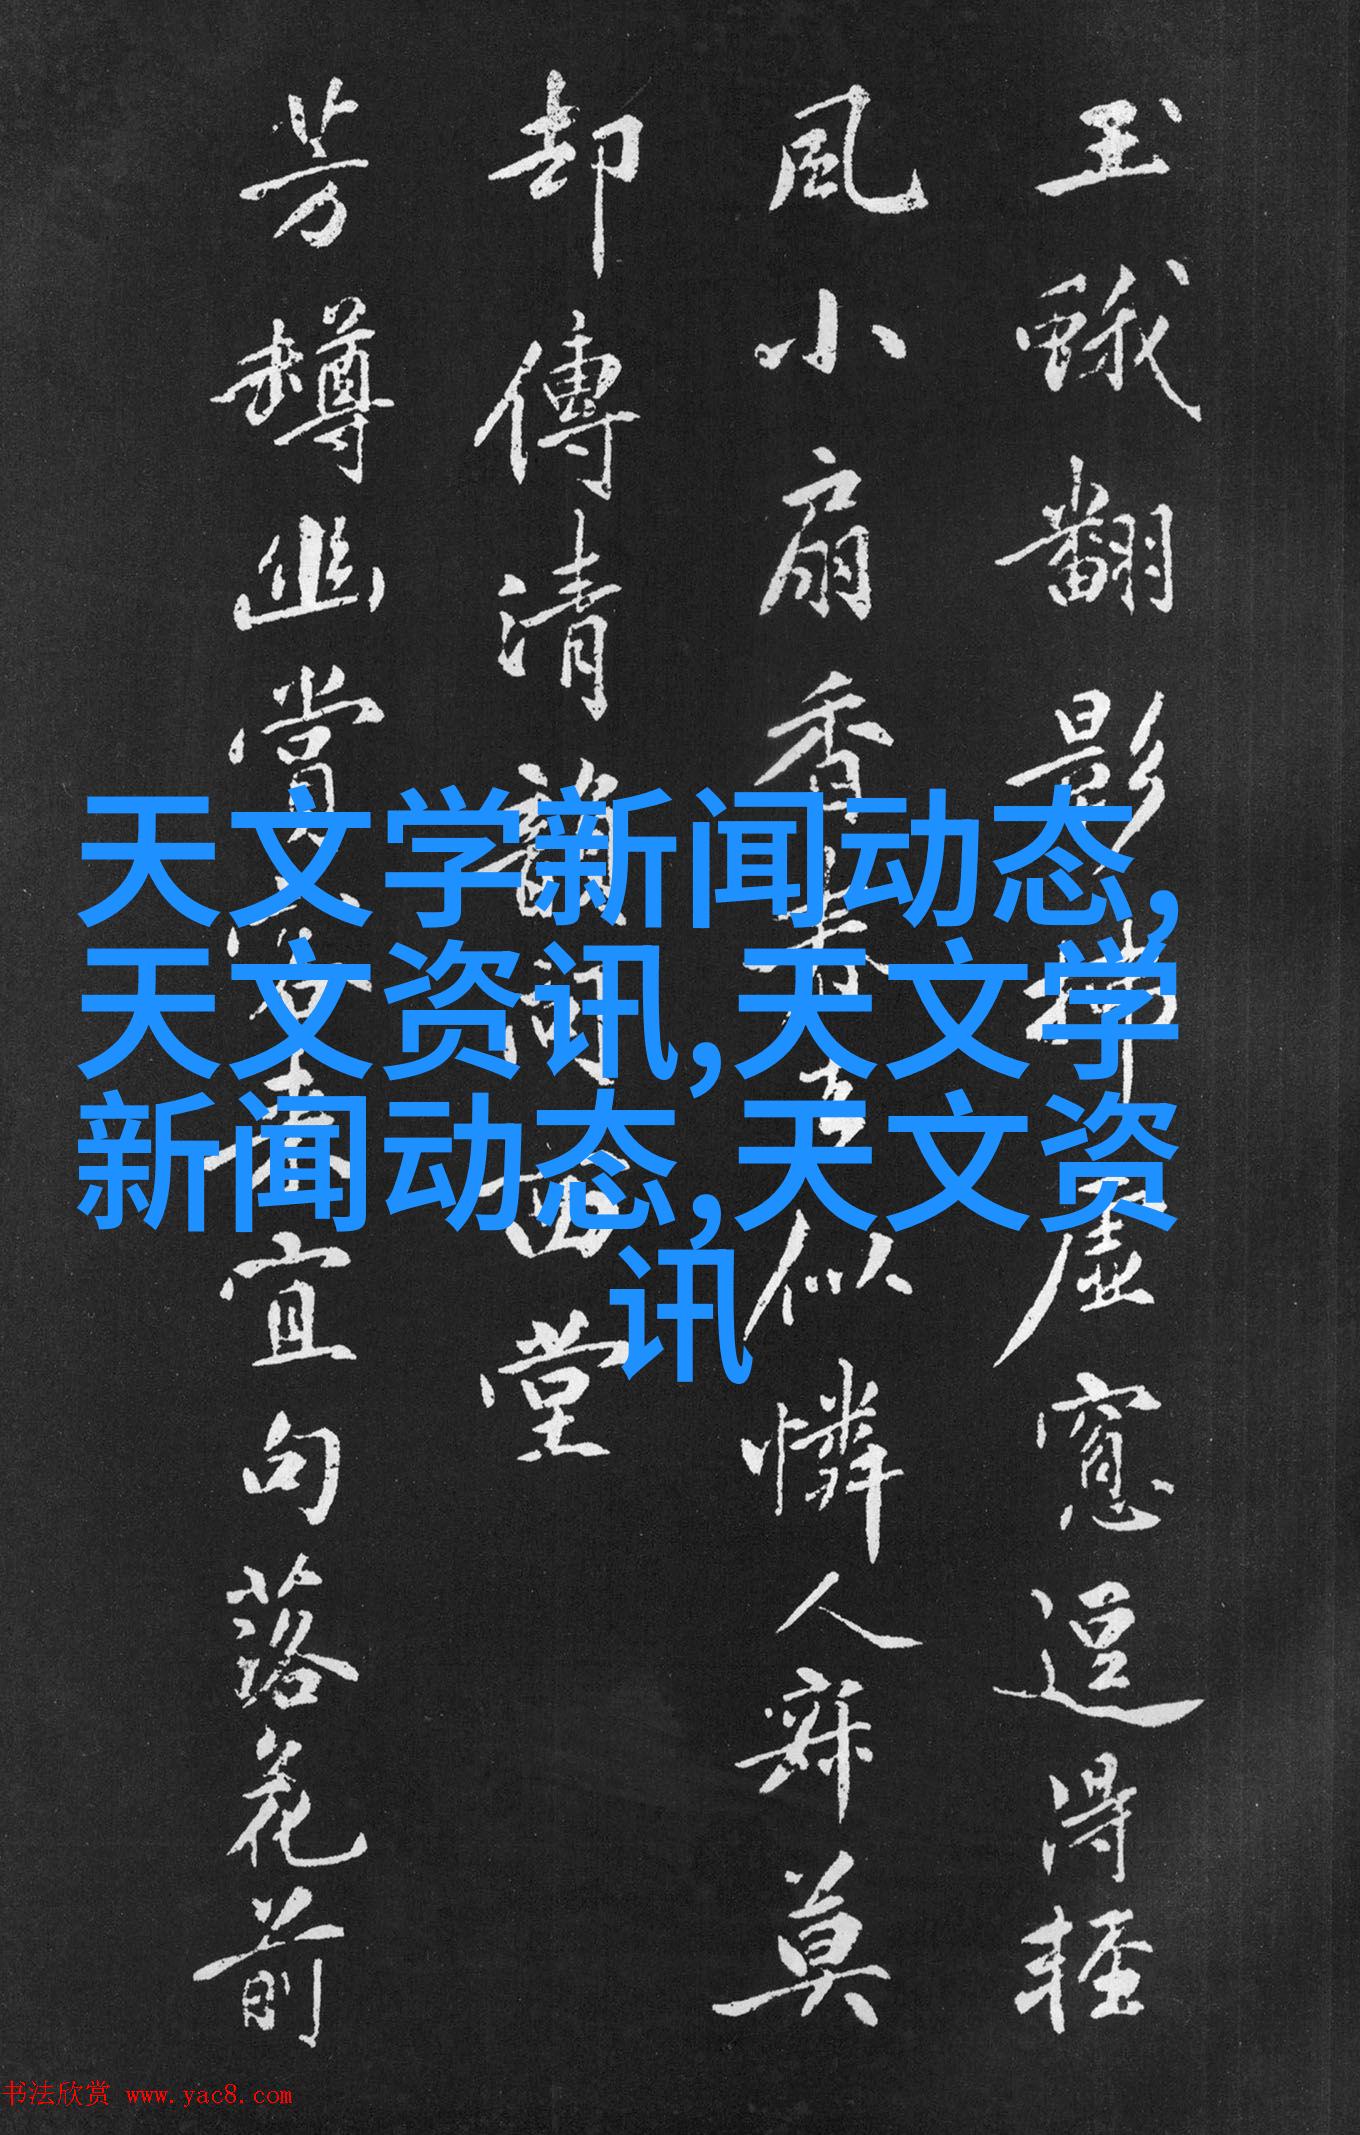 玉蛾翻影虛窻逗得輕
風小扇香春似憐人寂莫
却傳清韻西堂
芳樽幽賞宜句落花前
天文学新闻动态,
天文资讯,天文学
新闻动态,天文资
讯
书法欣赏 www.yac8.com